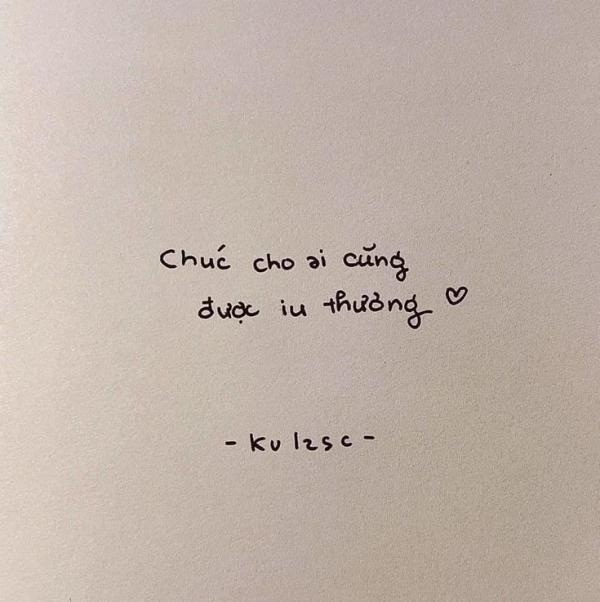 Chúc cho ai cũng
được iu thương ♡
- kulzsc -